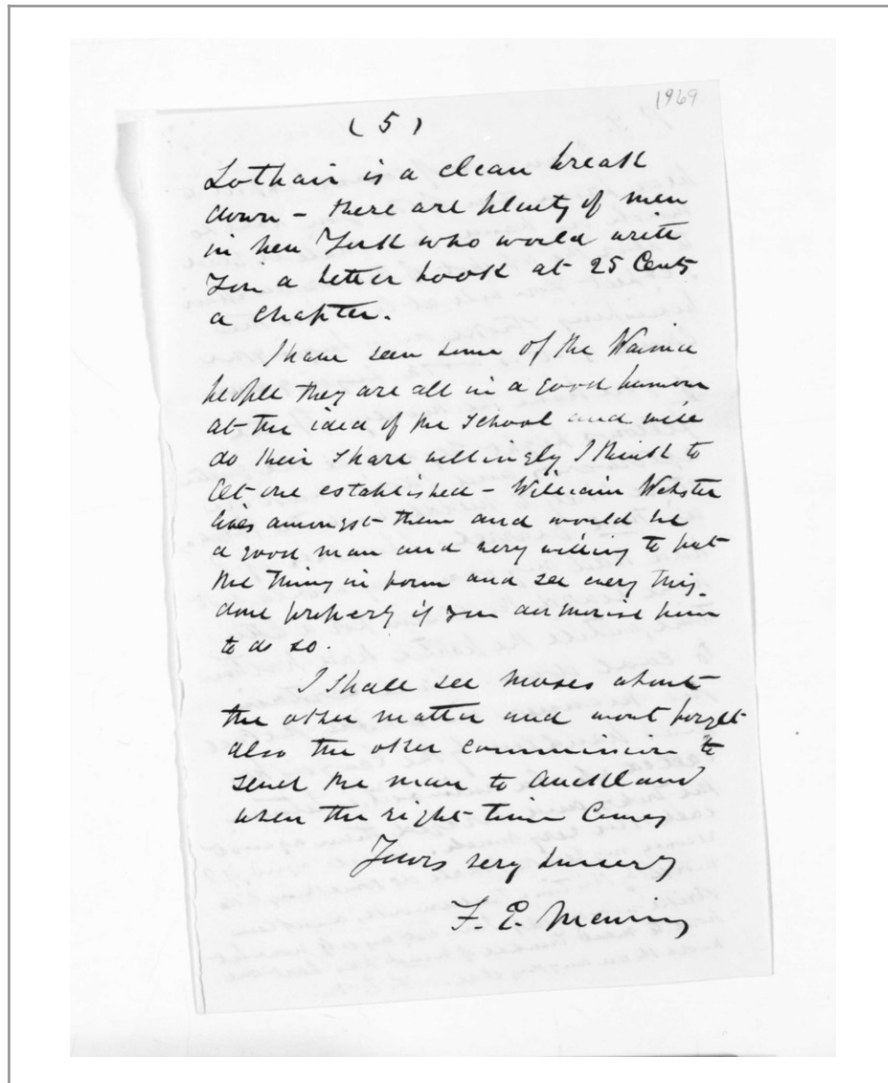 1969
(5)
Lothair is a clean break
down - there are plenty of men
in New York who would write
you a better book at 25 Cents
a Chapter.
I have seen some of the Waima
people they are all in a good humour
at the idea of the school and will
do their share willingly I think to
get one established - William Webster
lives amongst them and would be
a good man and very willing to put
the thing in form and see every thing
done properly if you authorise him
to do so.
I shall see Moses about
the other matter and wont forget
also the other commission to
send the man to Auckland
when the right time comes
Yours very sincerely
F. E. Maning